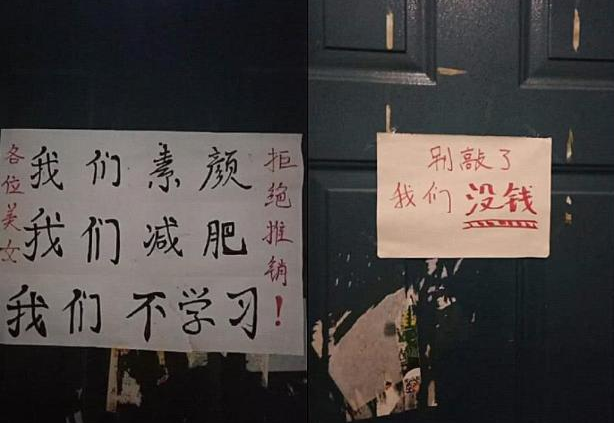 各位美女
我们素颜
我们减肥
我们不学习
拒绝推销！
别敲了
我们没钱